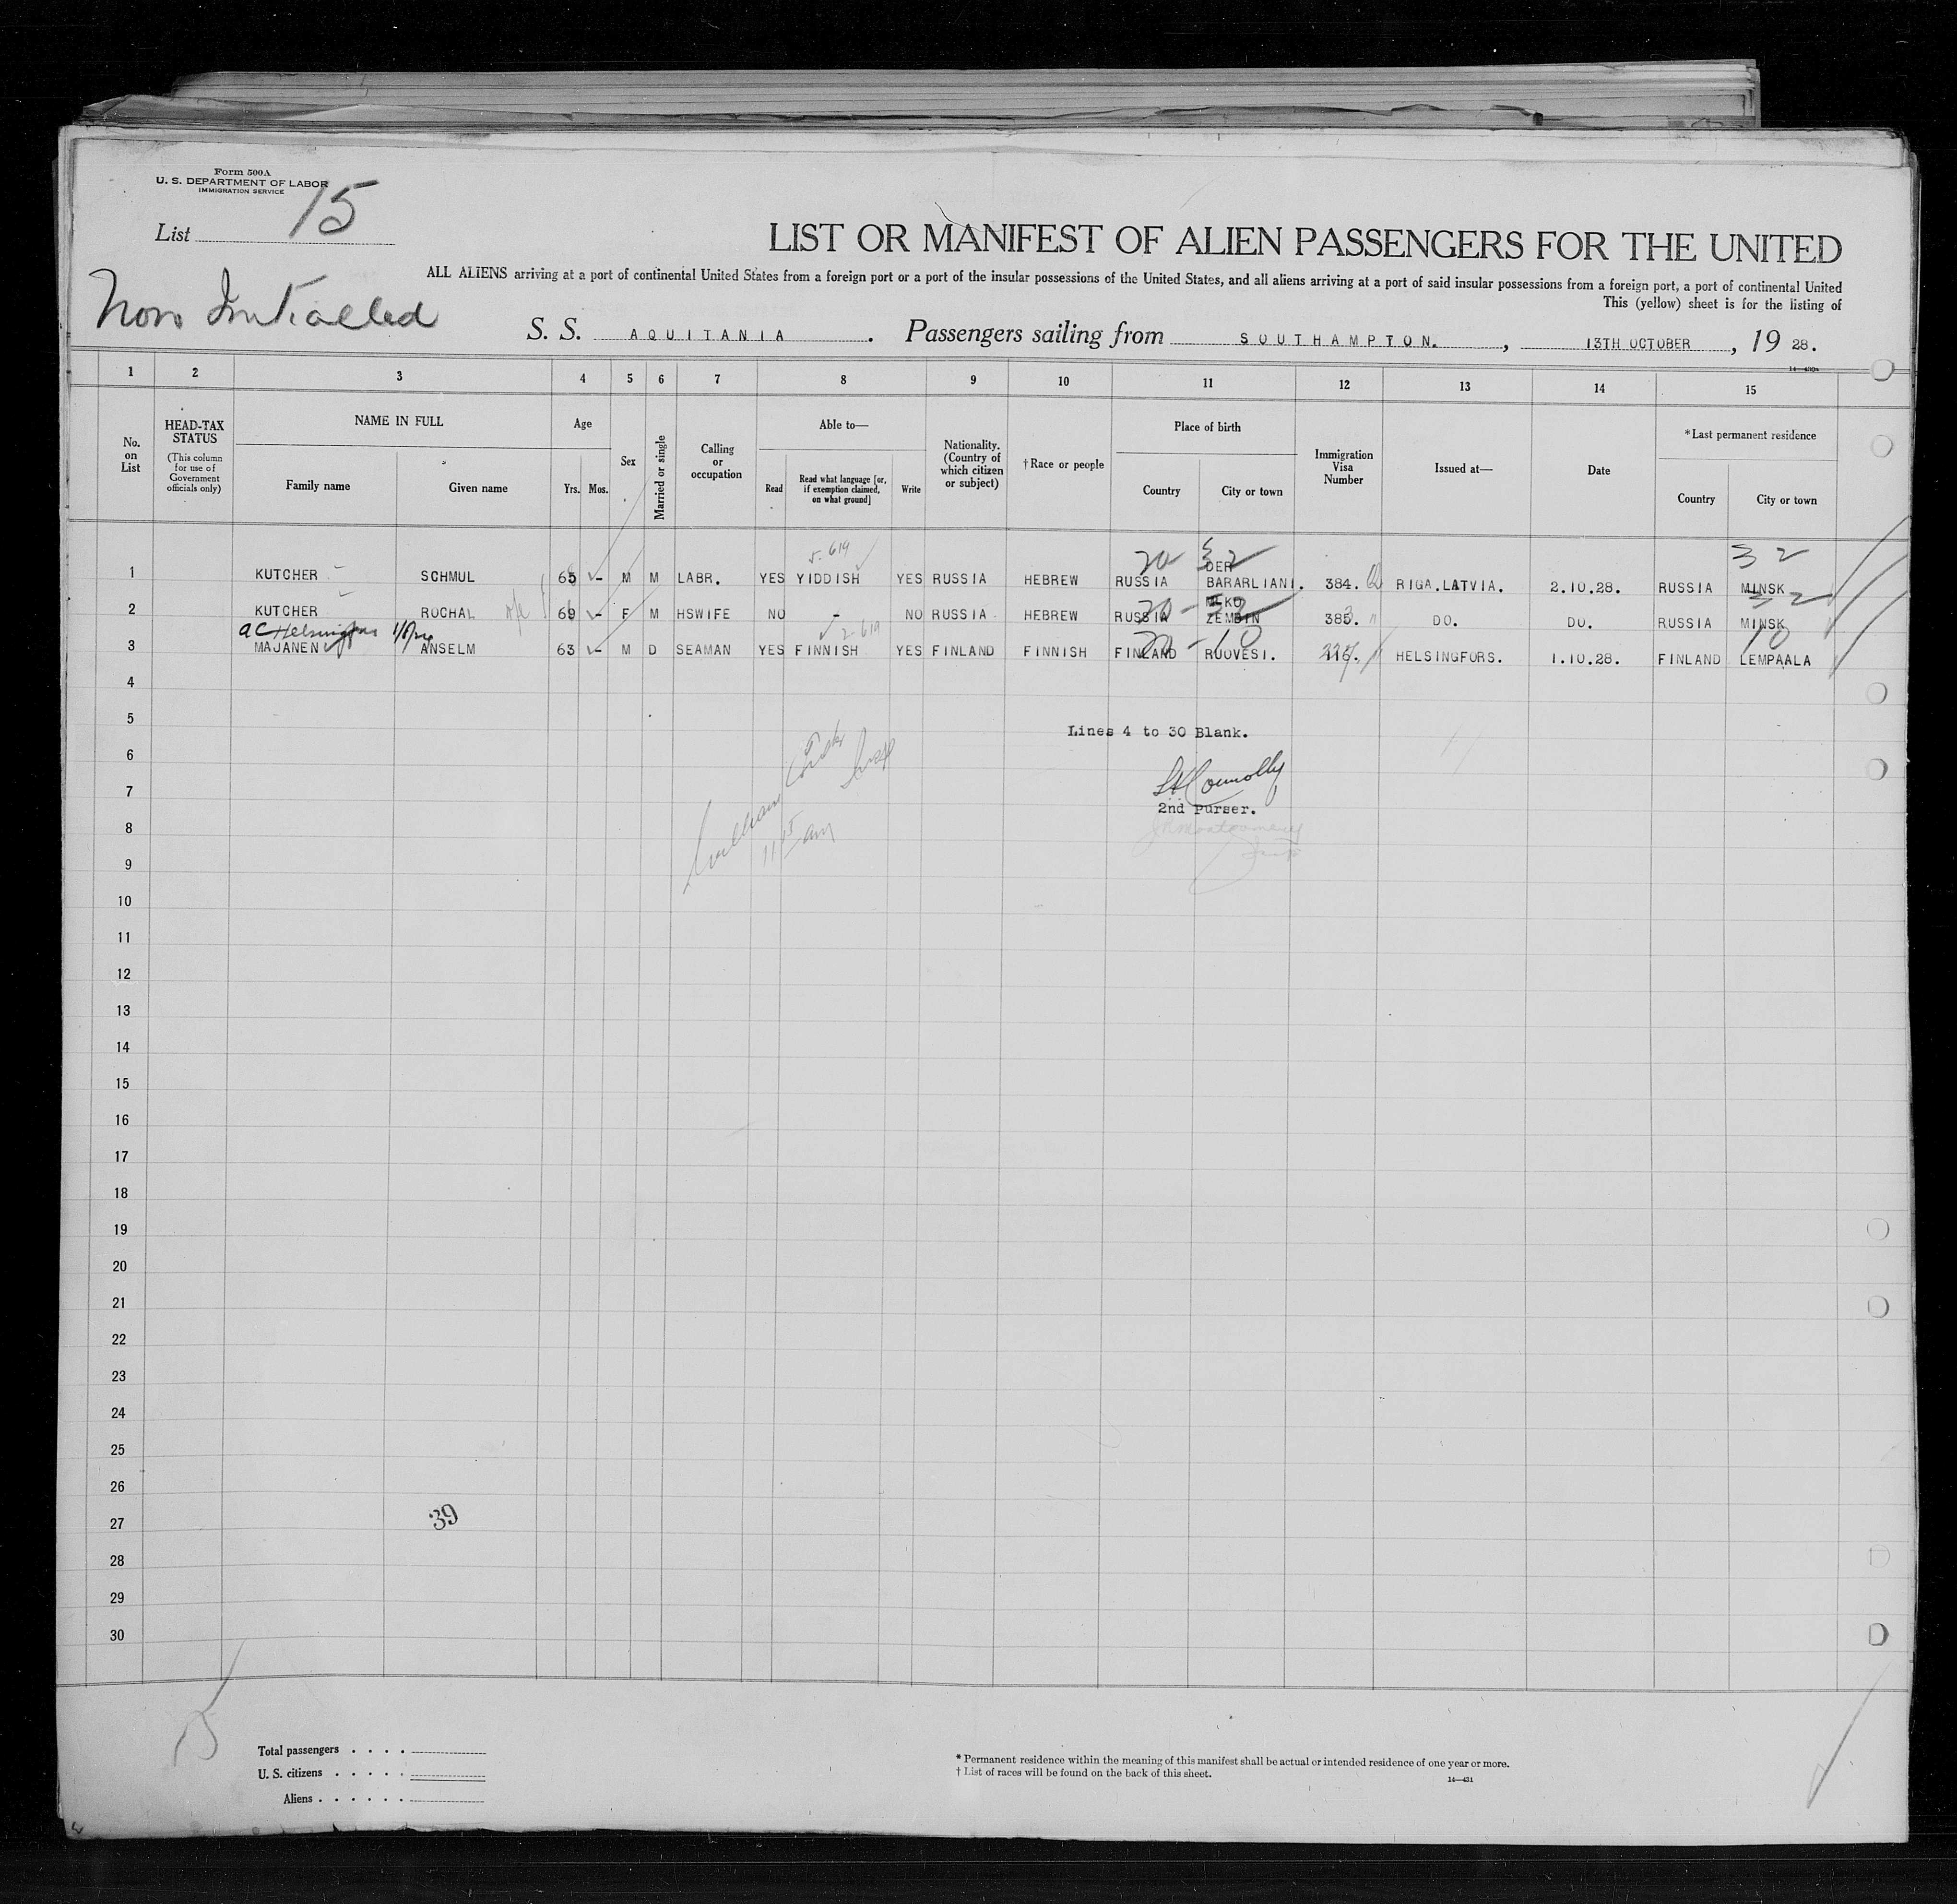 Form 500A
U. S. DEPARTMENT OF LABOR
IMMIGRATION SERVICE
List 15
LIST OR MANIFEST OF ALIEN PASSENGERS FOR THE UNITED
ALL ALIENS arriving at a port of continental United States from a foreign port or a port of the insular possessions of the United States, and all aliens arriving at a port of said insular possessions from a foreign port, a port of continental United
This (yellow) sheet is for the listing of
Non
S. S. AQUITANIA. Passengers sailing from SOUTHAMPTON., 13TH OCTOBER, 19 28.
14—430a
1 2 3 4 5 6 7 8 9 10 11 12 13 14 15
No. on List
HEAD-TAX STATUS
(This column for use of Government officials only)
NAME IN FULL
Family name
Given name
Age
Yrs. Mos.
Sex
Married or single
Calling or occupation
Able to—
Read
Read what language [or, if exemption claimed, on what ground]
Write
Nationality. (Country of which citizen or subject)
†Race or people
Place of birth
Country
City or town
Immigration Visa Number
Issued at—
Date
*Last permanent residence
Country
City or town
5-619
20 32
32
DER
1 KUTCHER SCHMUL 65 - M M LABR. YES YIDDISH YES RUSSIA HEBREW RUSSIA BARARLIANI. 384. RIGA.LATVIA. 2.10.28. RUSSIA MINSK
20-32
32
2 KUTCHER ROCHAL 69 - F M HSWIFE NO - NO RUSSIA HEBREW RUSSIA ZEMBIN 385. DO. DO. RUSSIA MINSK
ac Helsingfors
2-619
20-10
10
3 MAJANEN ANSELM 63 - M D SEAMAN YES FINNISH YES FINLAND FINNISH FINLAND RUOVESI. HELSINGFORS. 1.10.28. FINLAND LEMPAALA
4
5
Lines 4 to 30 Blank.
6
7
Connolly
2nd Purser.
8
11 15 am
9
10
11
12
13
14
15
16
17
18
19
20
21
22
23
24
25
26
27
39
28
29
30
15
Total passengers . . . .
U. S. citizens . . . . .
Aliens . . . . . .
* Permanent residence within the meaning of this manifest shall be actual or intended residence of one year or more.
† List of races will be found on the back of this sheet.
14—431